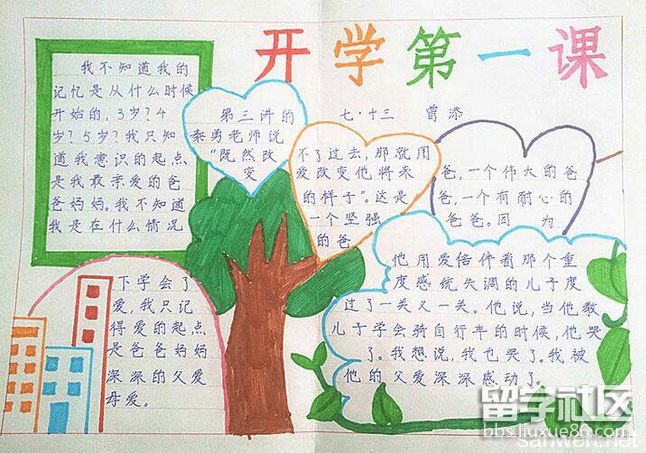 开学第一课
七·十三 曾添
我不知道我的
记忆是从什么时候
开始的,3岁?4
岁?5岁?我只知
道我意识的起点
是我最亲爱的爸
爸妈妈。我不知道
我是在什么情况
下学会了
爱,我只记
得爱的起点
是爸爸妈妈
深深的父爱
母爱。
第三讲的
秦勇老师说
“既然改
变
不了过去,那就用
爱改变他将来
的样子”。这是
一个坚强
的爸
爸,一个伟大的爸
爸,一个有耐心的
爸爸。因 为
他用爱陪伴着那个重
度感统失调的儿子度
过了一关又一关。他说,当他教
儿子学会骑自行车的时候,他哭
了。我想说,我也哭了。我被
他的父爱深深感动了。
留学社区
bbs.liuxue86.com